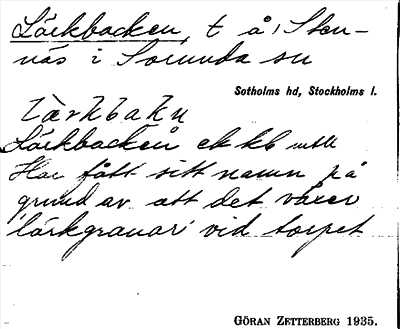 Lärkbacken, t å Sten-
näs i Sorunda sn
Sotholms hd, Stockholms l.
Lärkbacken ek kb
Har fått sitt namn på
grund av att det växer
'lärkgranar' vid torpet
GÖRAN ZETTERBERG 1935.